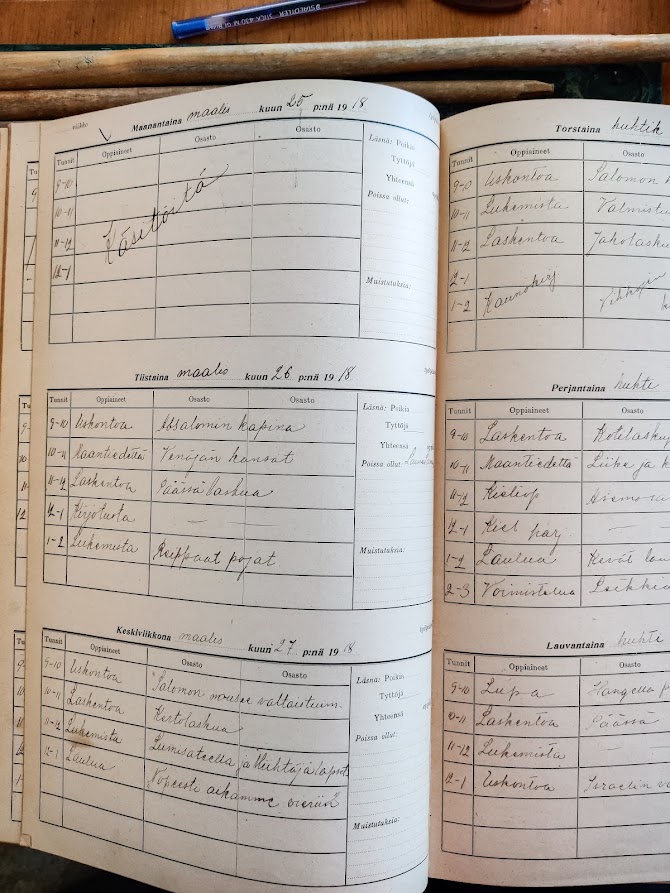 STAEDTLER STICK 430 M
viikko
Maanantaina maalis kuun 25 p:nä 1918
Tunnit Oppiaineet Osasto Osasto
9-10
10-11
11-12
12-1
Käsitöitä
Läsnä: Poikia
Tyttöjä
Yhteensä
Poissa ollut:
Muistutuksia:
Tiistaina maalis kuun 26 p:nä 1918
Tunnit Oppiaineet Osasto Osasto
9-10 Uskontoa Absalomin kapina
10-11 Maantiedettä Venäjän kansat
11-12 Laskentoa Päässä laskua
12-1 Kirjotusta —
1-2 Lukemista Reippaat pojat
Läsnä: Poikia
Tyttöjä
Yhteensä
Poissa ollut
Muistutuksia:
Keskiviikkona maalis kuun 27 p:nä 1918
Tunnit Oppiaineet Osasto Osasto
9-10 Uskontoa "Salomon nousee valtaistuim.
10-11 Laskentoa Kertolaskua
11-12 Lukemista Lumisateella ja lapset
12-1 Laulua Nopeesti aikamme vierii"
Läsnä: Poikia
Tyttöjä
Yhteensä
Poissa ollut:
Muistutuksia:
Torstaina huhtik
Tunnit Oppiaineet Osasto
9-10 Uskontoa Salomon
10-11 Lukemista Valmistu
11-12 Laskentoa Jakolasku
12-1
1-2 Kaunokirj
Perjantaina huhti
Tunnit Oppiaineet Osasto
9-10 Laskentoa Kotelasku
10-11 Maantiedettä Liike ja k
11-12 Kieliop
12-1 Kiel harj —
1-2 Laulua Kevät lau
2-3 Voimistelua Leikkiä
Lauvantaina huhti
Tunnit Oppiaineet Osasto
9-10 Lupa Hangella
10-11 Laskentoa Päässä
11-12 Lukemista —
12-1 Uskontoa Israelin